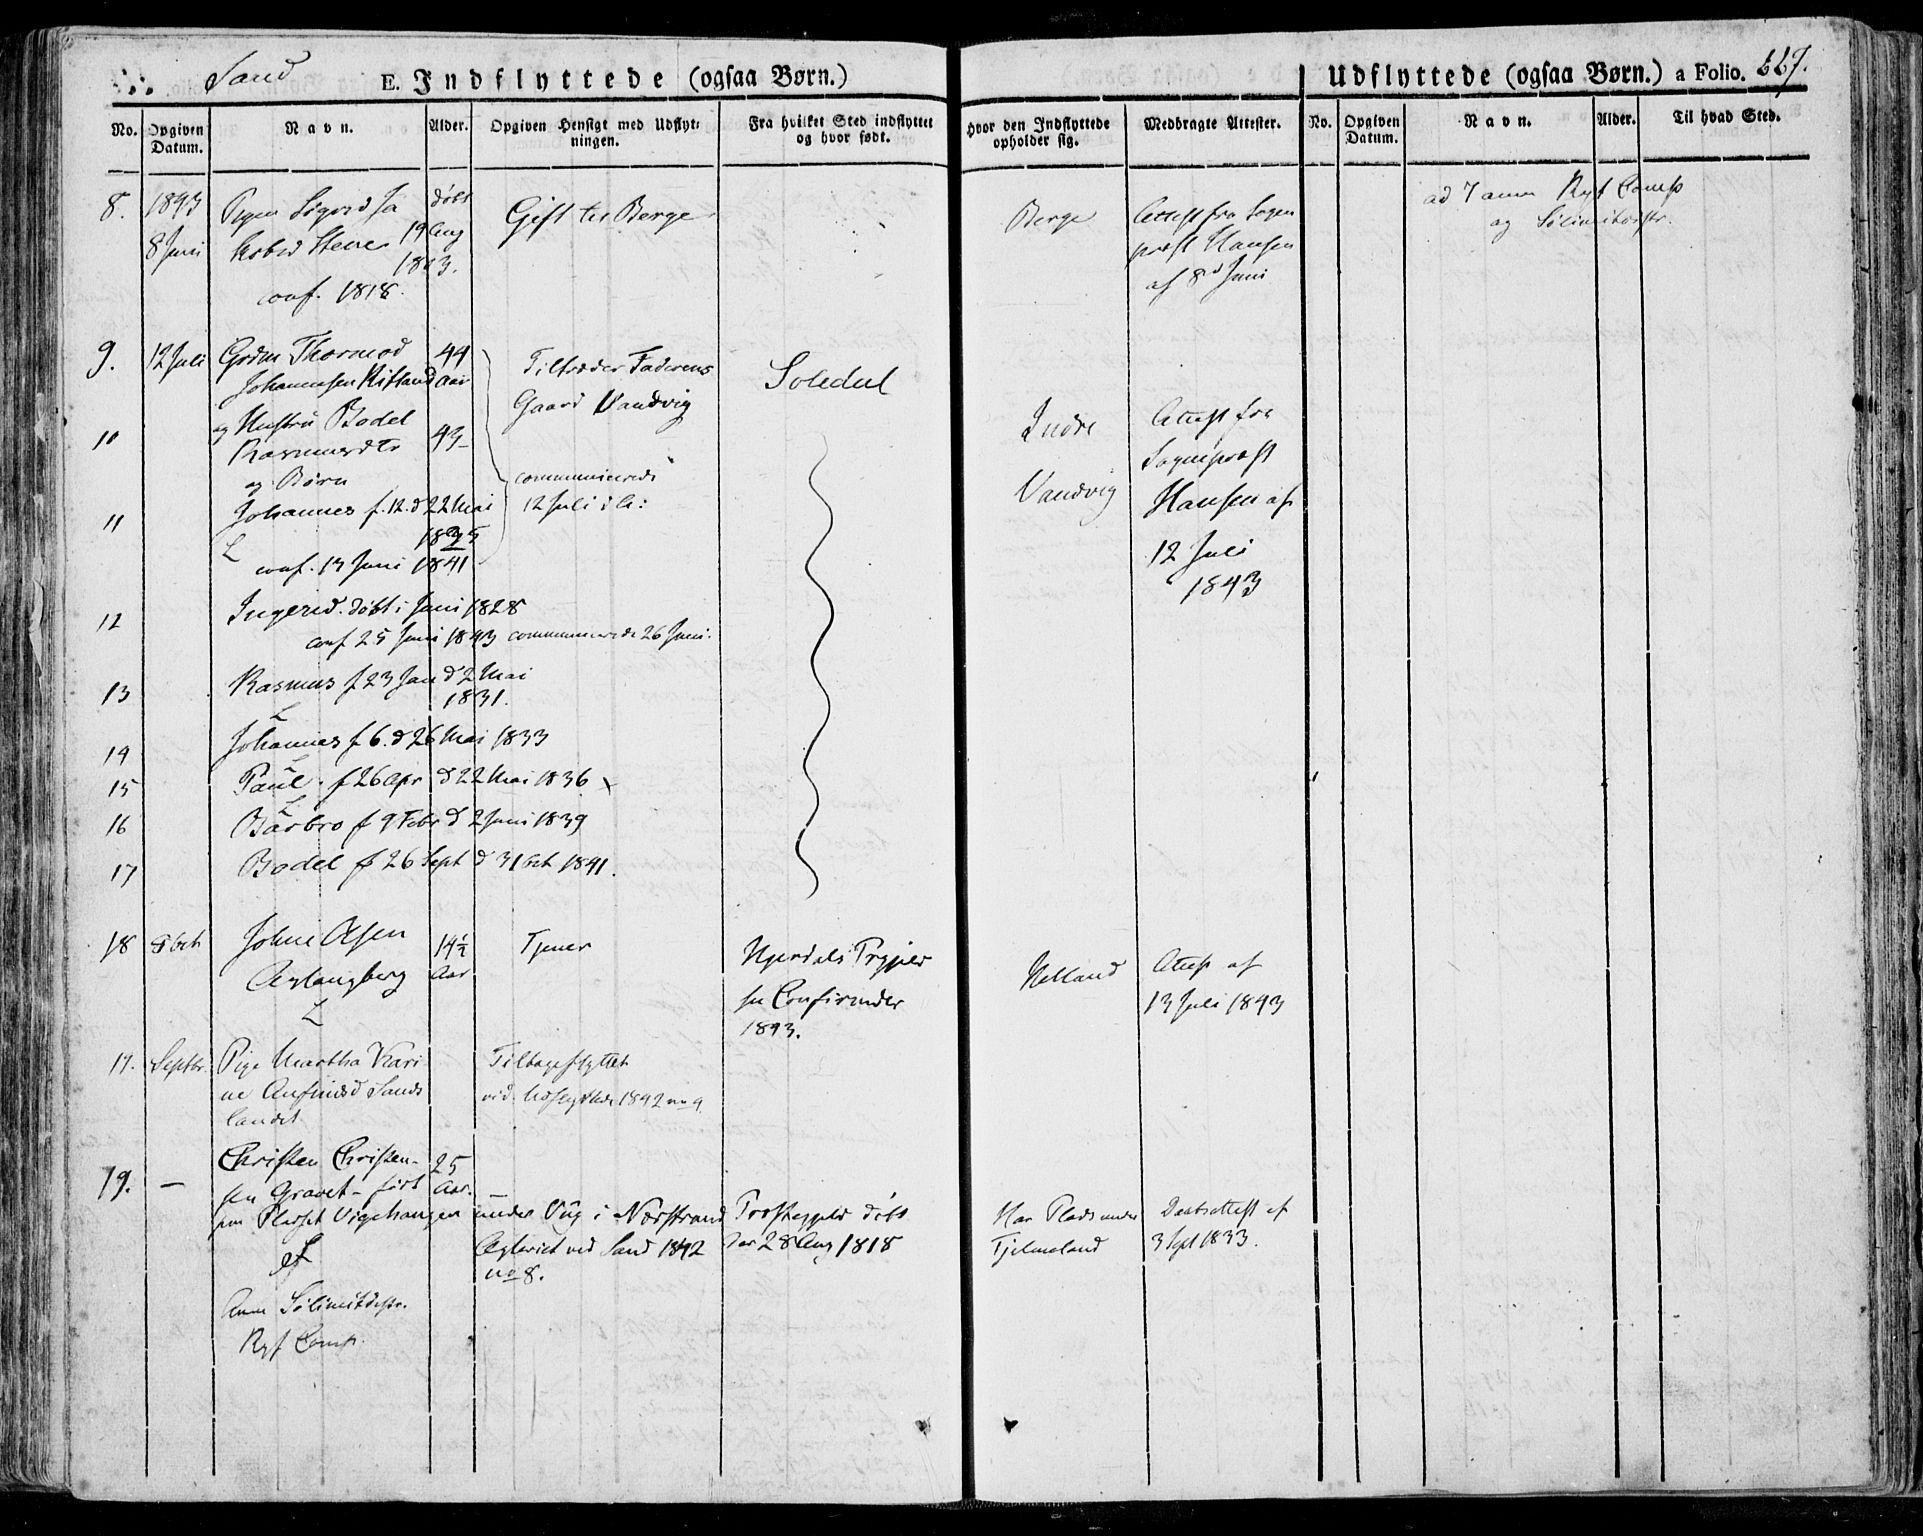 Sand
E. Indflyttede (ogsaa Børn.)
Udflyttede (ogsaa Børn.) a Folio.
No.
Opgiven Datum.
Navn.
Alder.
Opgiven Hensigt med Udflytningen.
Fra hvilket Sted indflyttet og hvor født.
Hvor den Indflyttede opholder sig.
Medbragte Attester.
No.
Opgiven Datum.
Navn.
Alder.
Til hvad Sted.
8. 1843 Pigen Sigrid Ja døbt
8 Juni Stene 19 Aug
1803.
conf. 1818.
Gift til Berge
Berge
Attest fra Sogne
præst Hansen
af 8d Juni
ad 7 anm Ryf Comp
og
9. 12 Juli Grdm Thormod 44
Johannesen Aar
og Hustru Bodel
10 Rasmusdtr 43
og Børn
11 Johannes f. 12. d 22 Mai
1825
conf. 13 Juni 1841
Tiltræder Faderens
Gaard Vandvig
communicerede
12 Juli d. A:
Suledal
Indre
Vandvig
Attest fra
Sognepræst
Hansen af
12 Juli
1843
12 Ingerid. døbt i Juni 1828
conf 25 Juni 1843 communicerede 26 Juni.
13 Rasmus f 23 Jan d 2 Mai
1831.
14 Johannes f 6. d 26 Mai 1833
15 Paul. f 26 Apr d 22 Mai 1836
16 Barbro f 9 Febr d 2 Juni 1839
17 Bodel f 26 Sept d 3 Oct 1841.
18 Oct John Olsen 14½
Aar
Tjener
Hjerdals Præstegjeld
Confirmeder
1843.
Attest af
13 Juli 1843
17. Septbr. Pige Martha Kari
ne Anfinsd Sands
landet
Tilbageflyttet
vid. Udflyttede 1842 no 9.
19. — Christen Christen- 25
sen Gravet - født Aar.
paa Pladset Vigehaugen under Vig i Nærstrand Præstegjeld døbt
ved Sand 1842 der 28 Aug 1818
no 8.
Har Plads under
Tjelmeland
Daabsattest af
3 Sept 1833.
Anm
Ryf Comp.